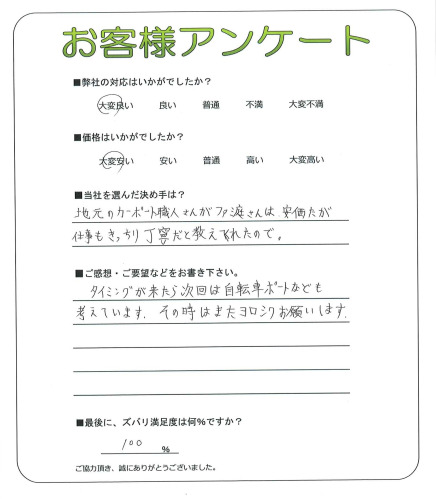 お客様アンケート
■弊社の対応はいかがでしたか？
大変良い 良い 普通 不満 大変不満
■価格はいかがでしたか？
大変安い 安い 普通 高い 大変高い
■当社を選んだ決め手は？
地元のカーポート職人さんが 渡さんは 安価だが
仕事もきっちり丁寧だと教えてくれたので。
■ご感想・ご要望などをお書き下さい。
タイミングが来たら次回は自転車ポートなども
考えています. その時はまたヨロシクお願いします.
■最後に、ズバリ満足度は何％ですか？
100 ％
ご協力頂き、誠にありがとうございました。